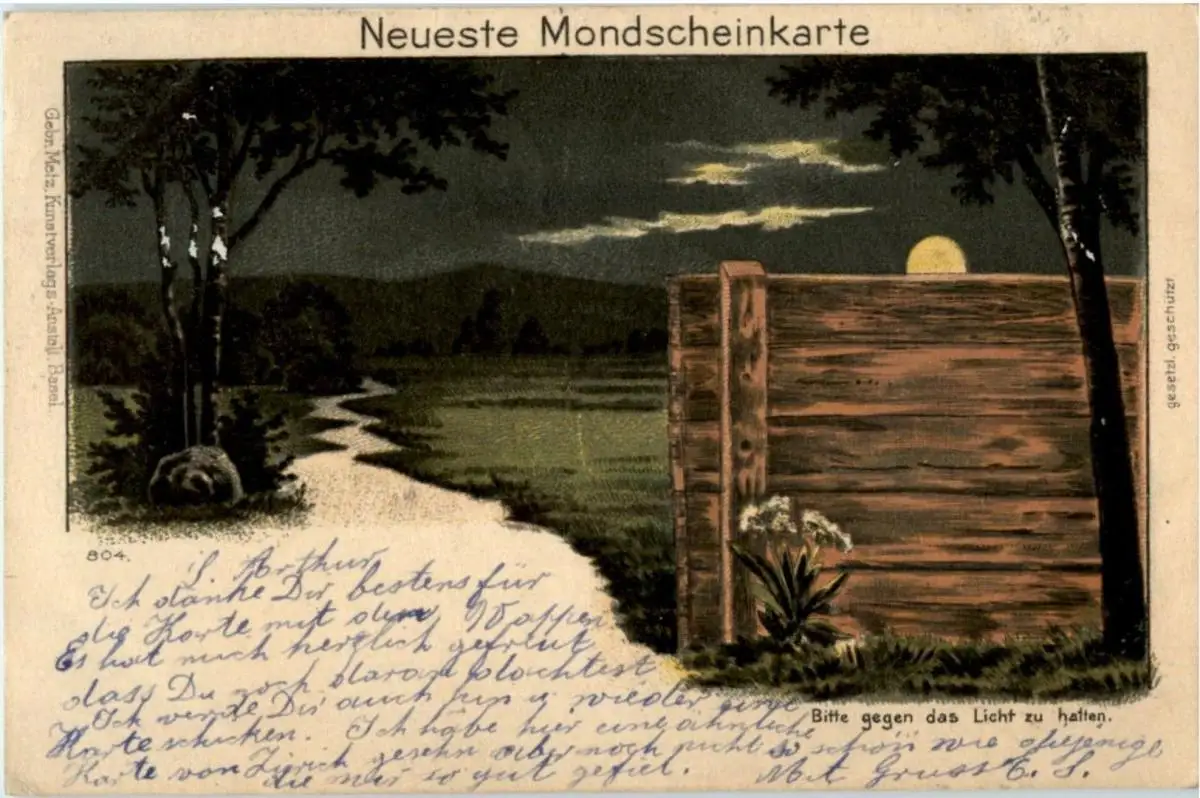 Neueste Mondscheinkarte
Gebr. Metz, Kunstverlags-Anstalt. Basel.
gesetzl. geschützt
804.
L. Arthur
Ich danke Dir bestens für
die Karte mit dem Wappen
Es hat mich herzlich gefreut
dass Du noch daran dachtest
Ich werde Dir auch hin u wieder eine
Karte schicken. Ich habe hier eine ähnliche
Karte von Zürich gesehn aber noch nicht so schön wie diejenige
die mir so gut gefiel. Mit Gruss E. S.
Bitte gegen das Licht zu halten.